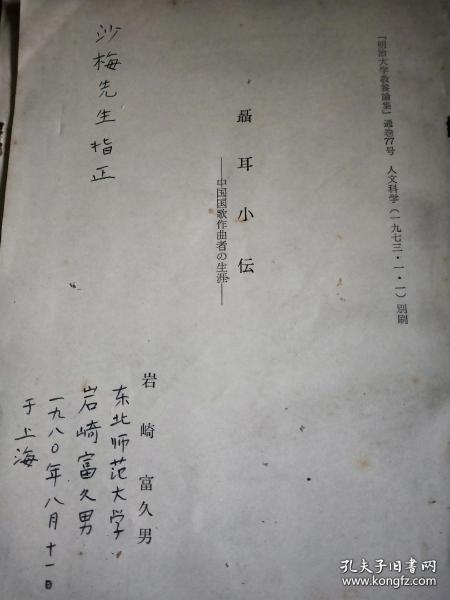 『明治大学教養論集』通巻77号　人文科学(一九七三・一・一)別刷
聶耳小伝
——中国国歌作曲者の生涯——
岩崎富久男
沙梅先生指正
东北师范大学
岩崎富久男
一九八〇年八月十一日
于上海
孔夫子旧书网
www.kongfz.com